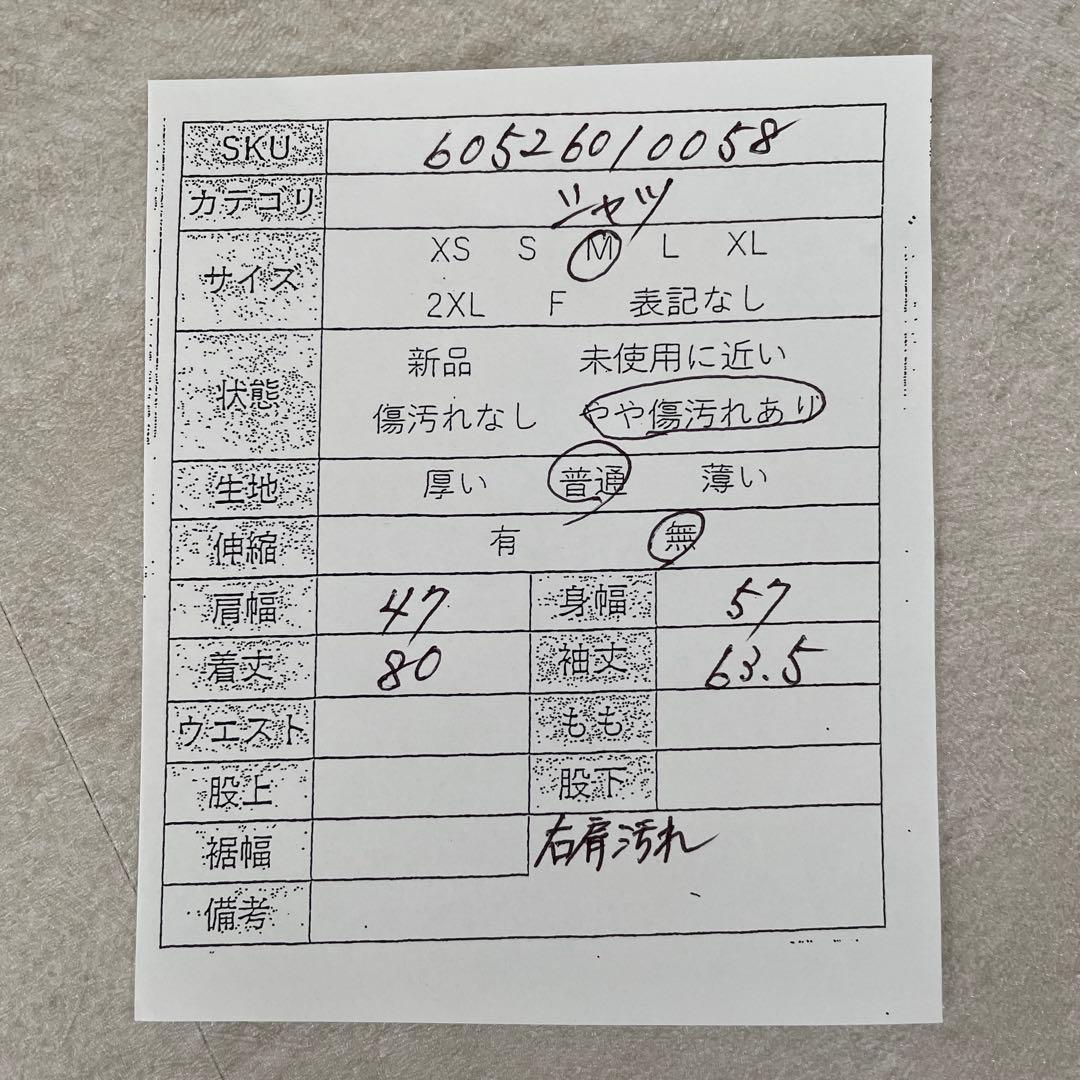 SKU 60526010058
カテゴリ シャツ
XS S M L XL
サイズ
2XL F 表記なし
新品 未使用に近い
状態
傷汚れなし やや傷汚れあり
生地 厚い 普通 薄い
伸縮 有 無
肩幅 47 身幅 57
着丈 80 袖丈 63.5
ウエスト もも
股上 股下
裾幅 右肩汚れ
備考